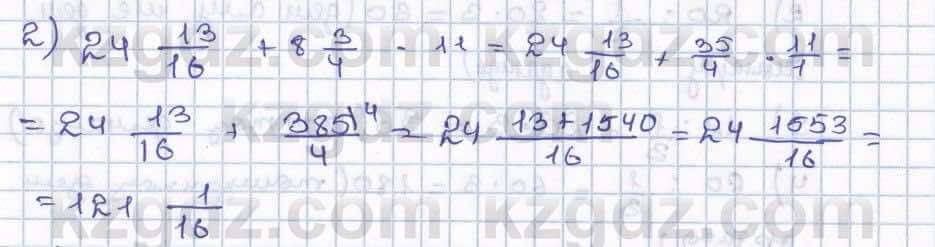 2) 24 13/16 + 8 3/4 · 11 = 24 13/16 + 35/4 · 11/1 =
= 24 13/16 + 385\4/4 = 24 13+1540/16 = 24 1553/16 =
= 121 1/16
kzgaz.com